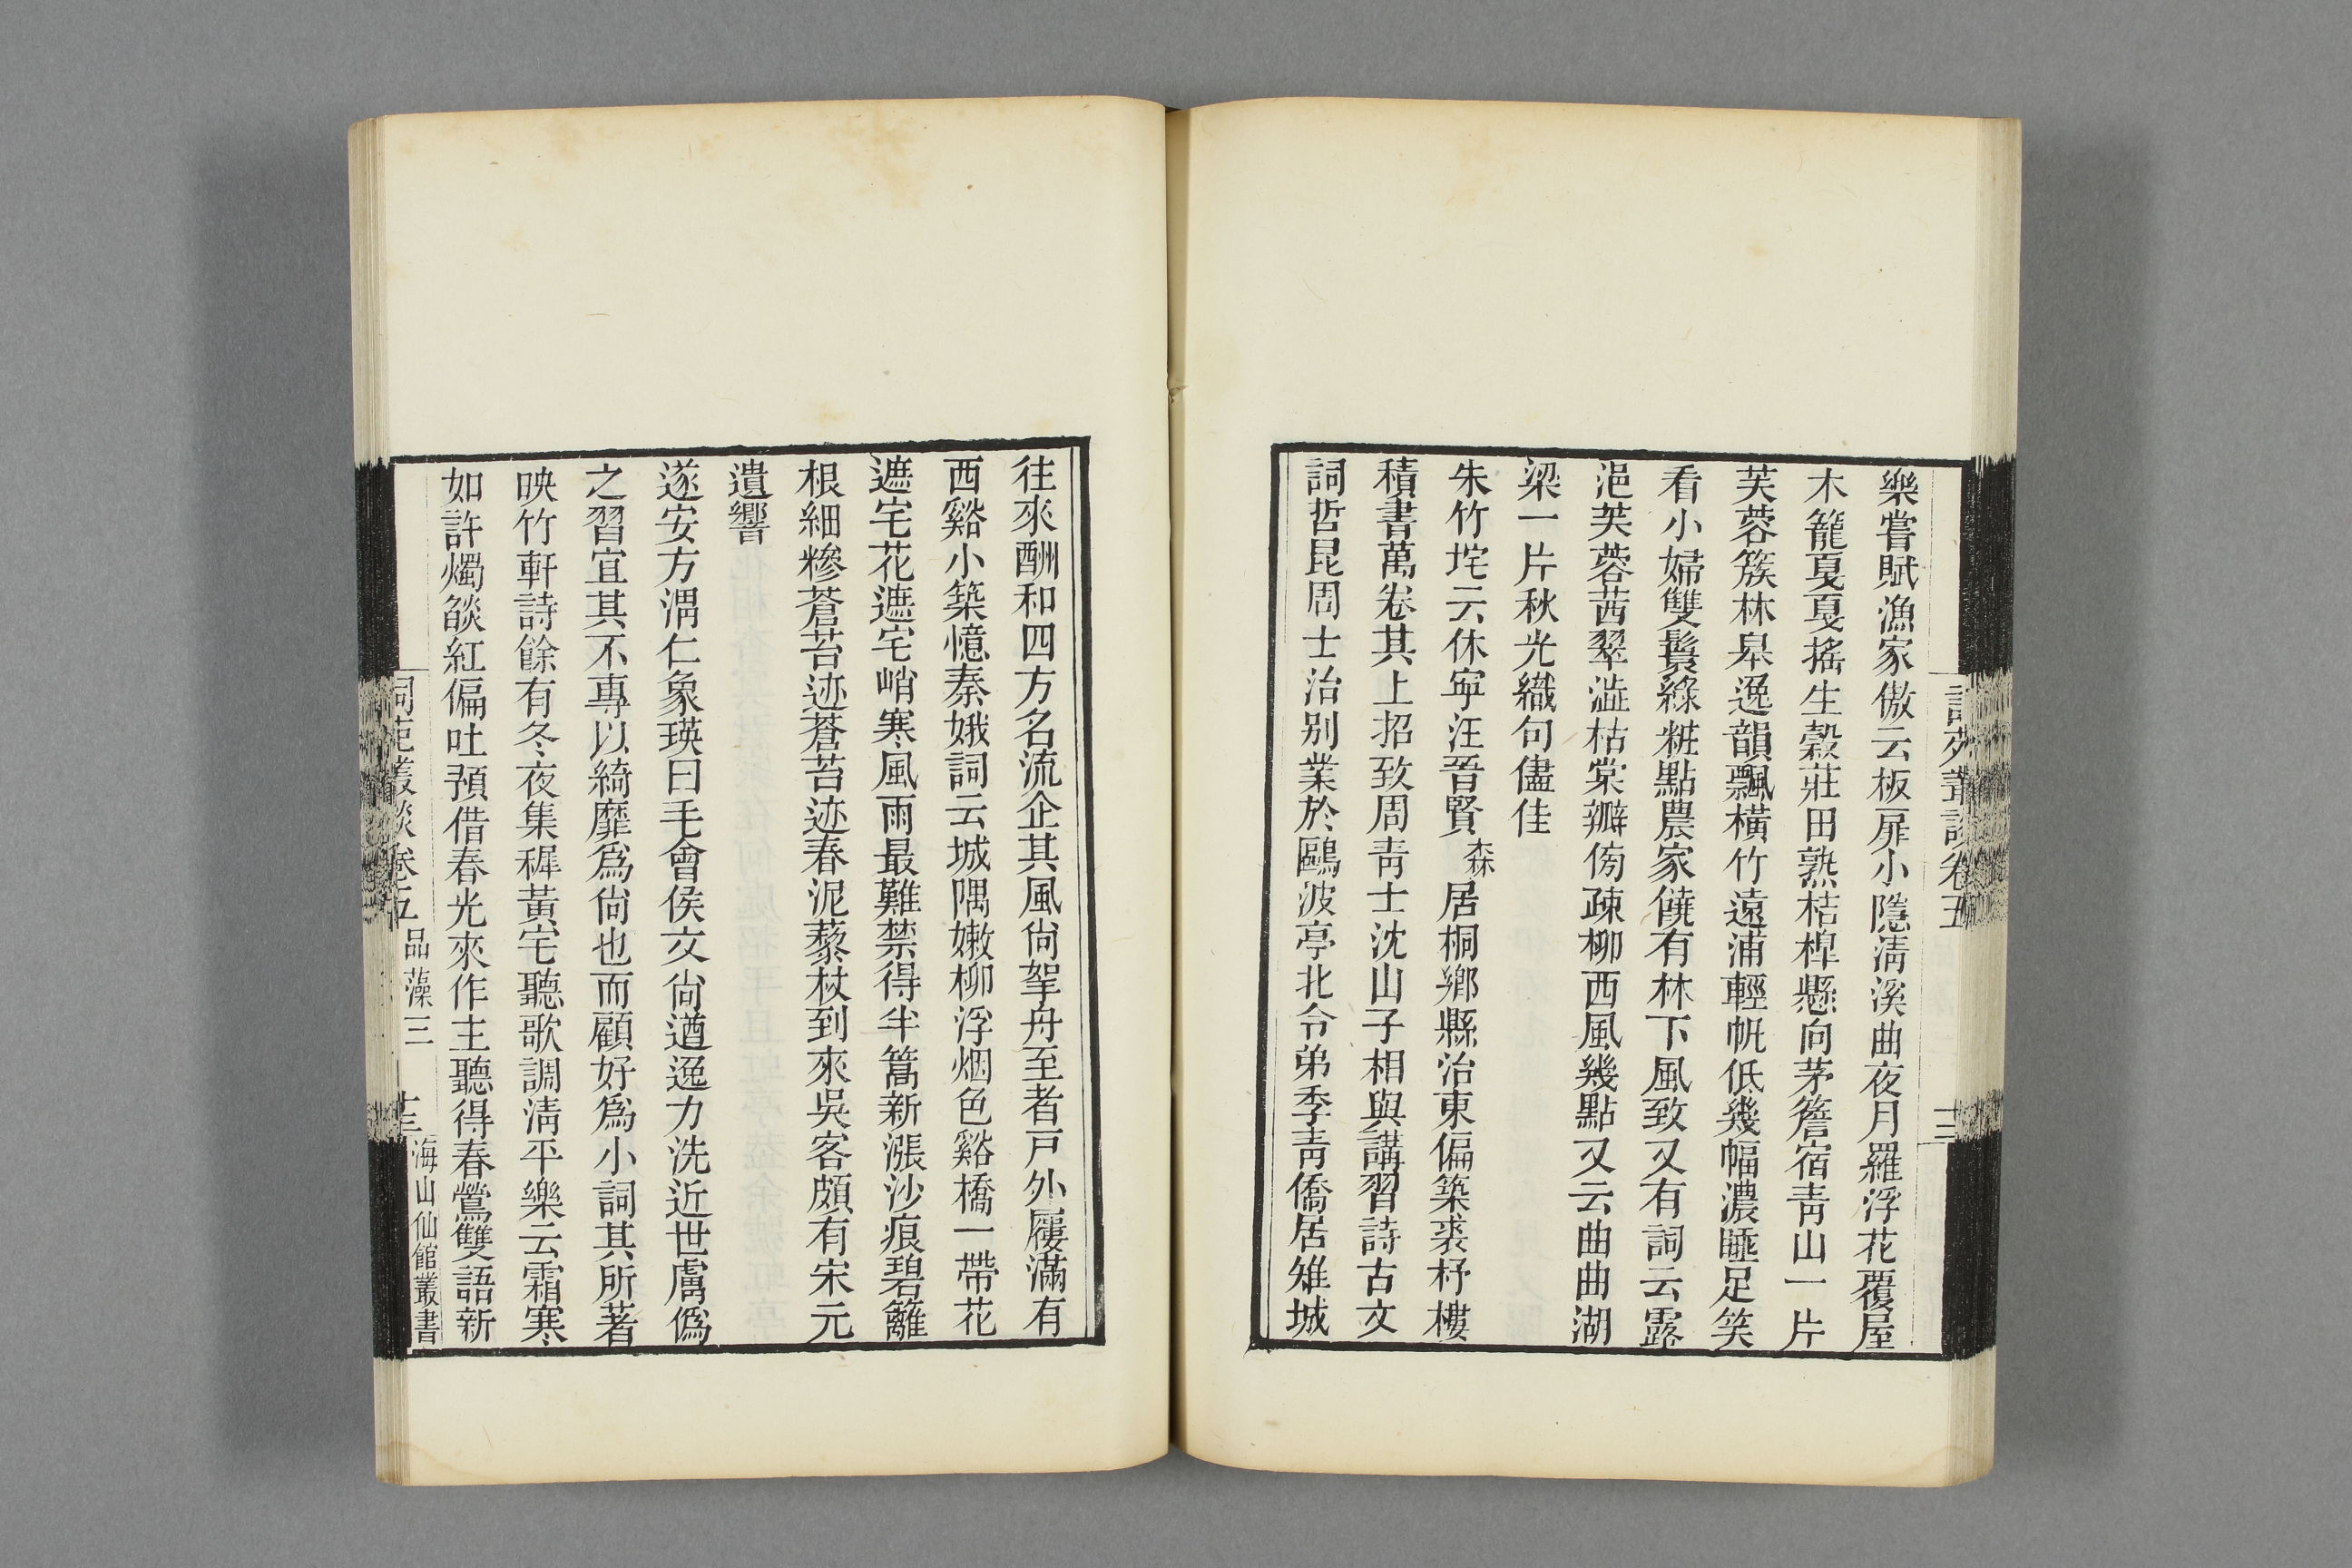 詞苑叢談卷五
十三
樂嘗賦漁家傲云板扉小隱淸溪曲夜月羅浮花覆屋
木籠戛戛搖生穀莊田熟桔槹懸向茅簷宿靑山一片
芙蓉簇林臯逸韻飄橫竹遠浦輕帆低幾幅濃睡足笑
看小婦雙鬟綠粧點農家饒有林下風致又有詞云露
浥芙蓉茜翠澁枯棠瓣傍疎柳西風幾點又云曲曲湖
梁一片秋光織句儘佳
朱竹垞云休寧汪晉賢森居桐鄉縣治東偏築裘杼樓
積書萬卷其上招致周靑士沈山子相與講習詩古文
詞哲昆周士治別業於鷗波亭北令弟季靑僑居雉城
往來酬和四方名流企其風尙挐舟至者戸外屨滿有
西谿小築憶秦娥詞云城隅嫩柳浮烟色谿橋一帶花
遮宅花遮宅峭寒風雨最難禁得半篙新漲沙痕碧籬
根細糝蒼苔迹蒼苔迹春泥藜杖到來吳客頗有宋元
遺響
遂安方渭仁象瑛曰毛會侯文尙遒逸力洗近世膚僞
之習宜其不專以綺靡爲尙也而顧好爲小詞其所著
映竹軒詩餘有冬夜集穉黃宅聽歌調淸平樂云霜寒
如許燭燄紅偏吐預借春光來作主聽得春鶯雙語新
詞苑叢談卷五
品藻三
十三
海山仙館叢書